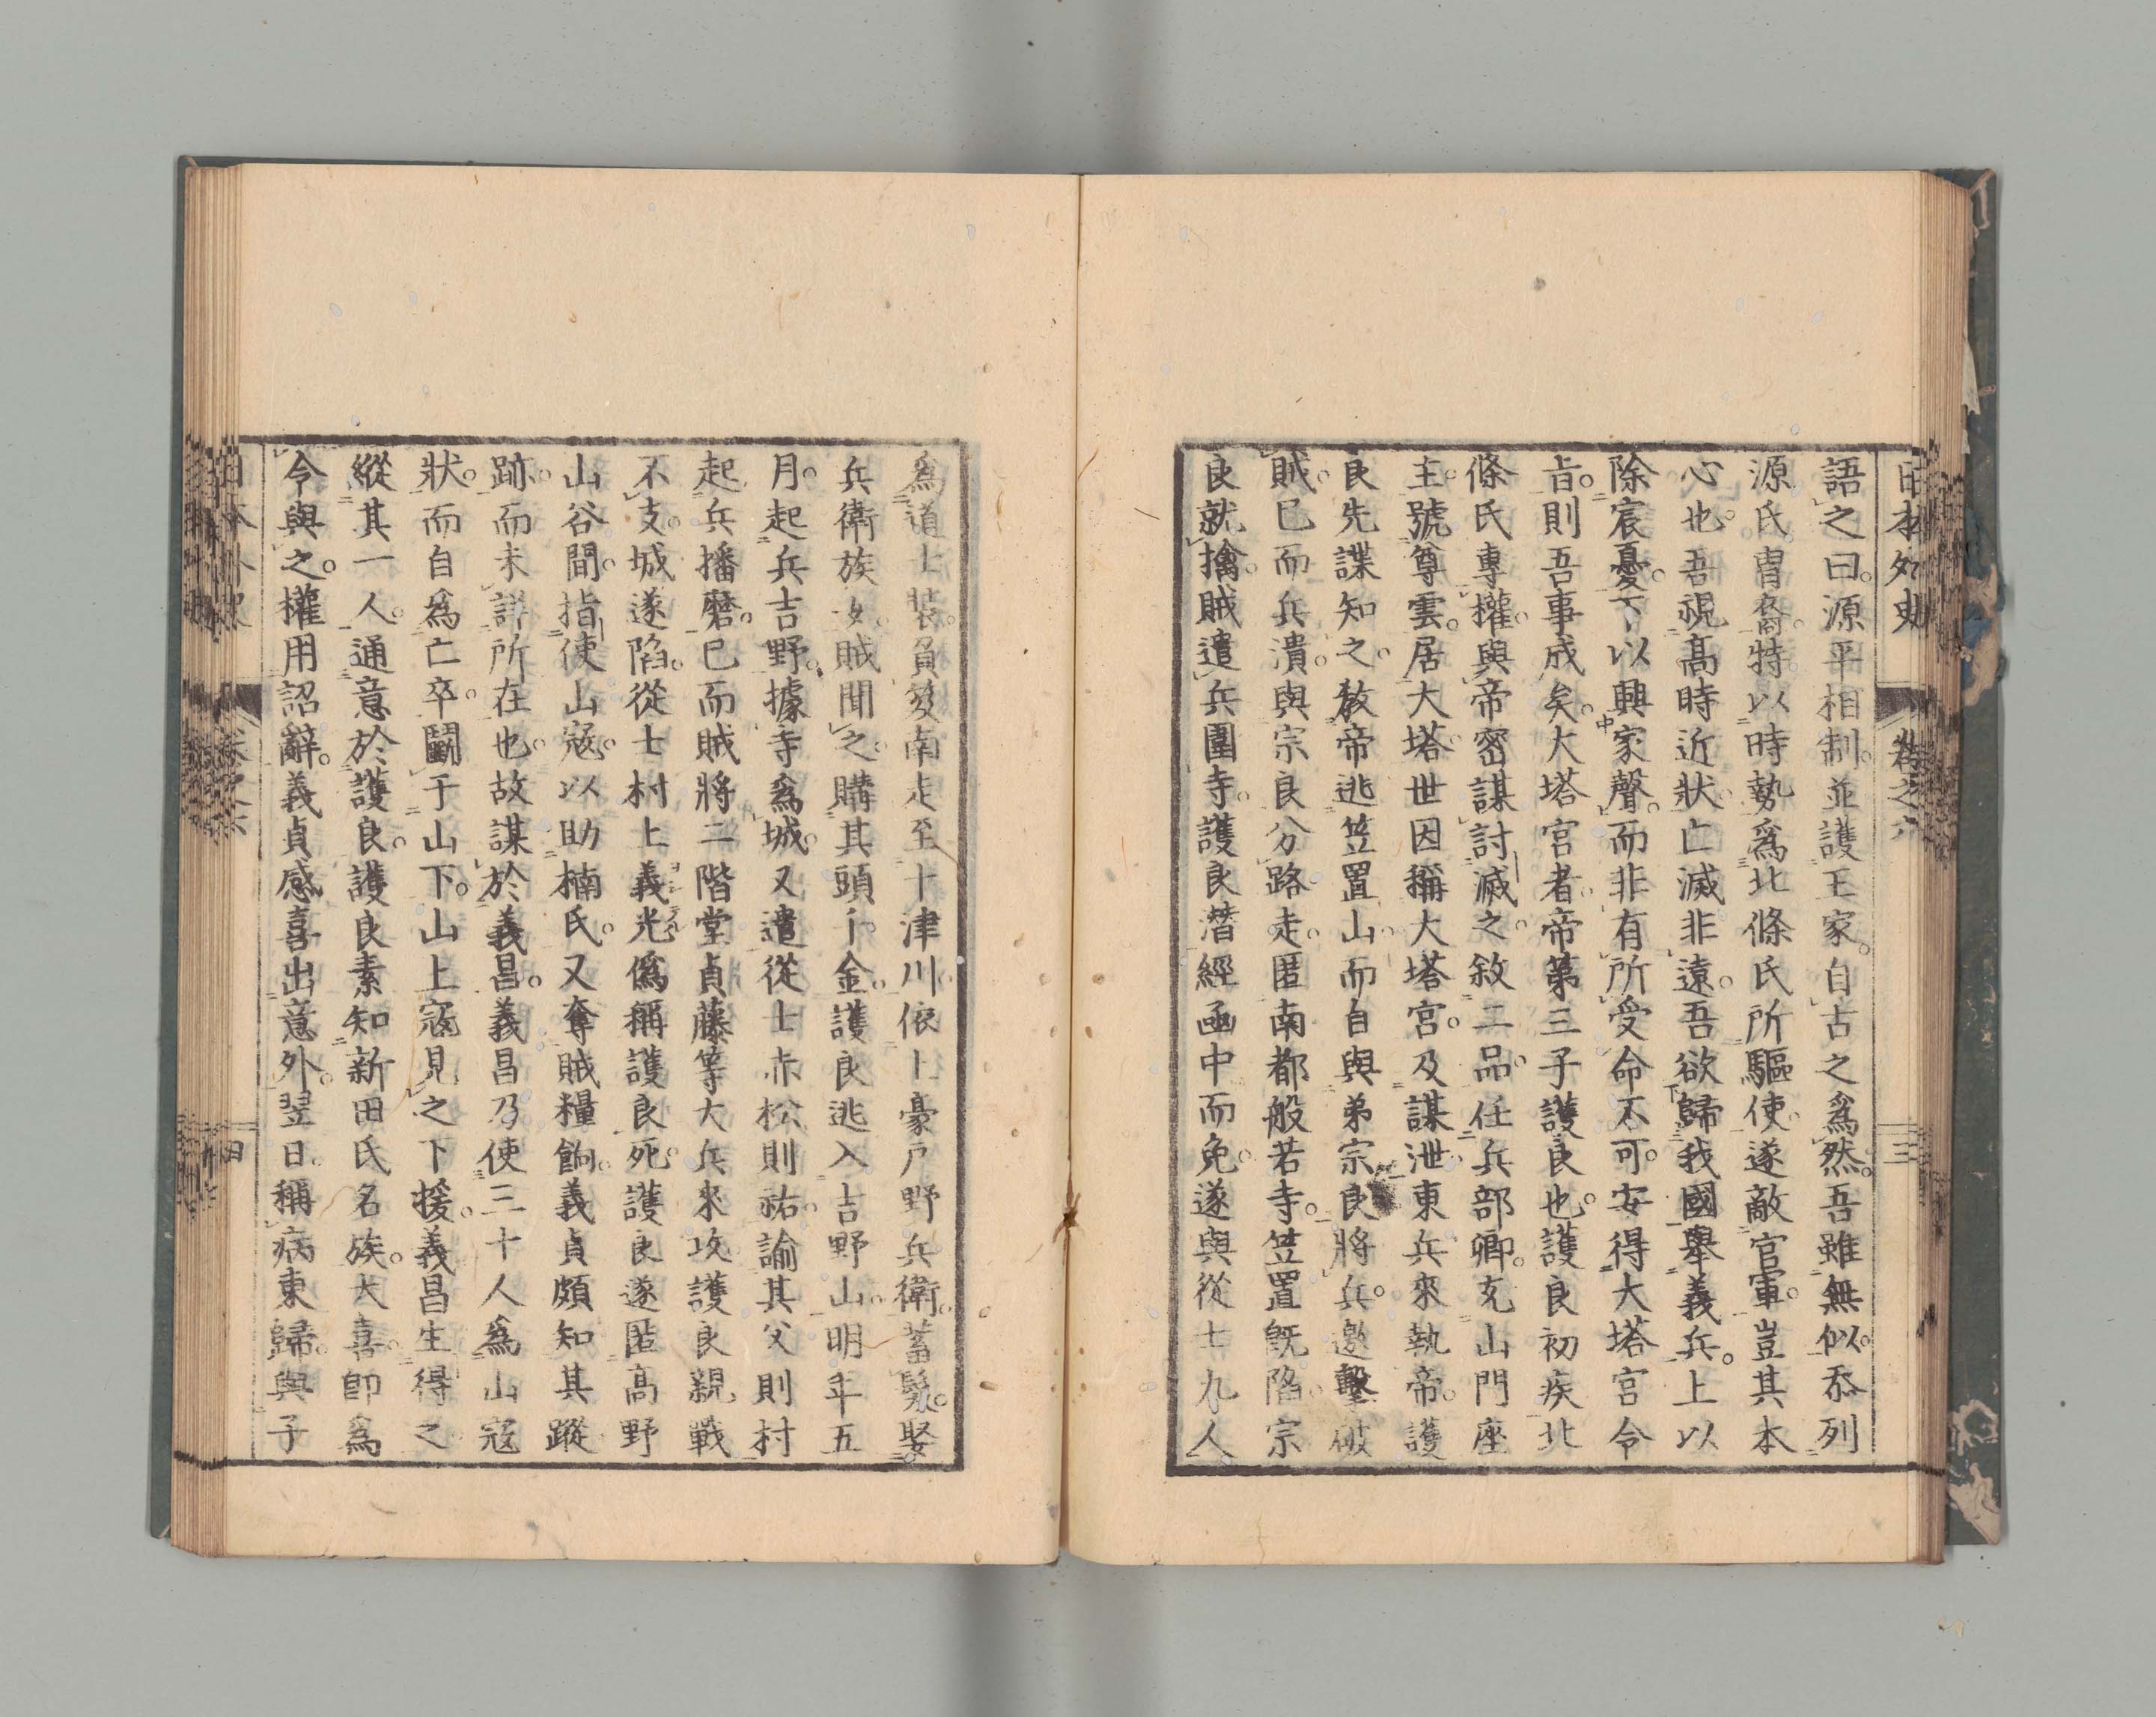 日本外史
卷之六
三
語之曰。源平相制。並護王家。自古之爲然。吾雖無似。忝列
源氏冑裔。特以時勢爲北條氏所驅使。遂敵官軍。豈其本
心也。吾視高時近狀。亡滅非遠。吾欲歸我國舉義兵。上以
除宸憂。下以興家聲。而非有所受命不可。安得大塔宮令
旨。則吾事成矣。大塔宮者。帝第三子護良也。護良初疾北
條氏專權。與帝密謀討滅之。敘二品。任兵部卿。充山門座
主。號尊雲。居大塔。世因稱大塔宮。及謀泄東兵來執帝。護
良先諜知之。教帝逃笠置山。而自與弟宗良將兵。邀擊破
賊。已而兵潰。與宗良分路走。匿南都般若寺。笠置既陷。宗
良就擒。賊遣兵圍寺。護良潛經函中而免。遂與從士九人
爲道士裝。負笈南走。至十津川。依土豪戶野兵衛。蓄髮。娶
兵衛族女。賊聞之。購其頭千金。護良逃入吉野山。明年五
月。起兵吉野。據寺爲城。又遣從士赤松則祐。諭其父則村
起兵播磨。已而賊將二階堂貞藤等大兵來攻。護良親戰
不支。城遂陷。從士村上義光僞稱護良死。護良遂匿高野
山谷間。指使山寇。以助楠氏。又奪賊糧餉。義貞頗知其蹤
跡。而未詳所在也。故謀於義昌。義昌乃使三十人爲山寇
狀。而自爲亡卒。鬭于山下。山上寇見之下援。義昌生得之
縱其一人。通意於護良。護良素知新田氏名族。大喜。卽爲
令與之。權用詔辭。義貞感喜出意外。翌日。稱病東歸。與子
日本外史
卷之六
四